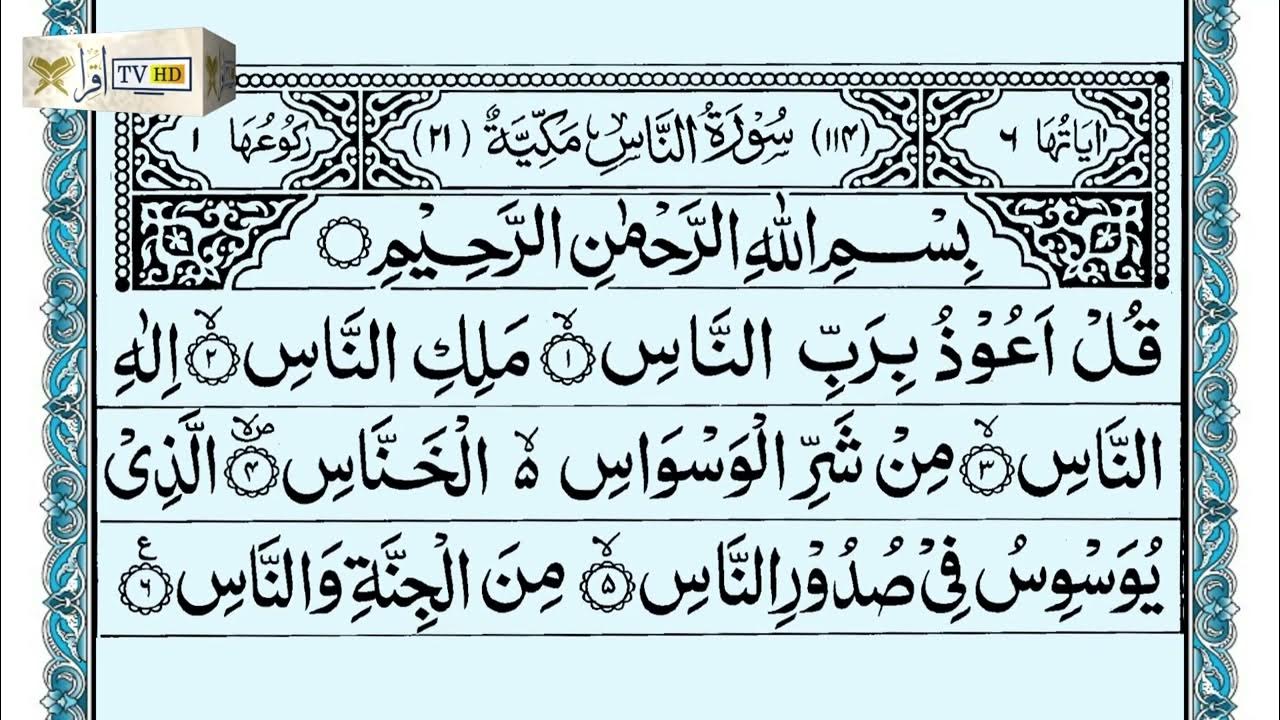 اقرأ TV HD
اٰيَاتُهَا ٦ (۱۱۴) سُوْرَةُ النَّاسِ مَكِّيَّةٌ (۲۱) رَكُوْعُهَا ۱
بِسْمِ اللّٰهِ الرَّحْمٰنِ الرَّحِيْمِ
قُلْ اَعُوْذُ بِرَبِّ النَّاسِ ۙ‏﴿۱﴾ مَلِكِ النَّاسِ ۙ‏﴿۲﴾ اِلٰهِ
النَّاسِ ۙ‏﴿۳﴾ مِنْ شَرِّ الْوَسْوَاسِ ۵ ۙ الْخَنَّاسِ ۪ۙ‏﴿۴﴾ الَّذِىْ
يُوَسْوِسُ فِىْ صُدُوْرِ النَّاسِ ۙ‏﴿۵﴾ مِنَ الْجِنَّةِ وَالنَّاسِ ع ﴿۶﴾